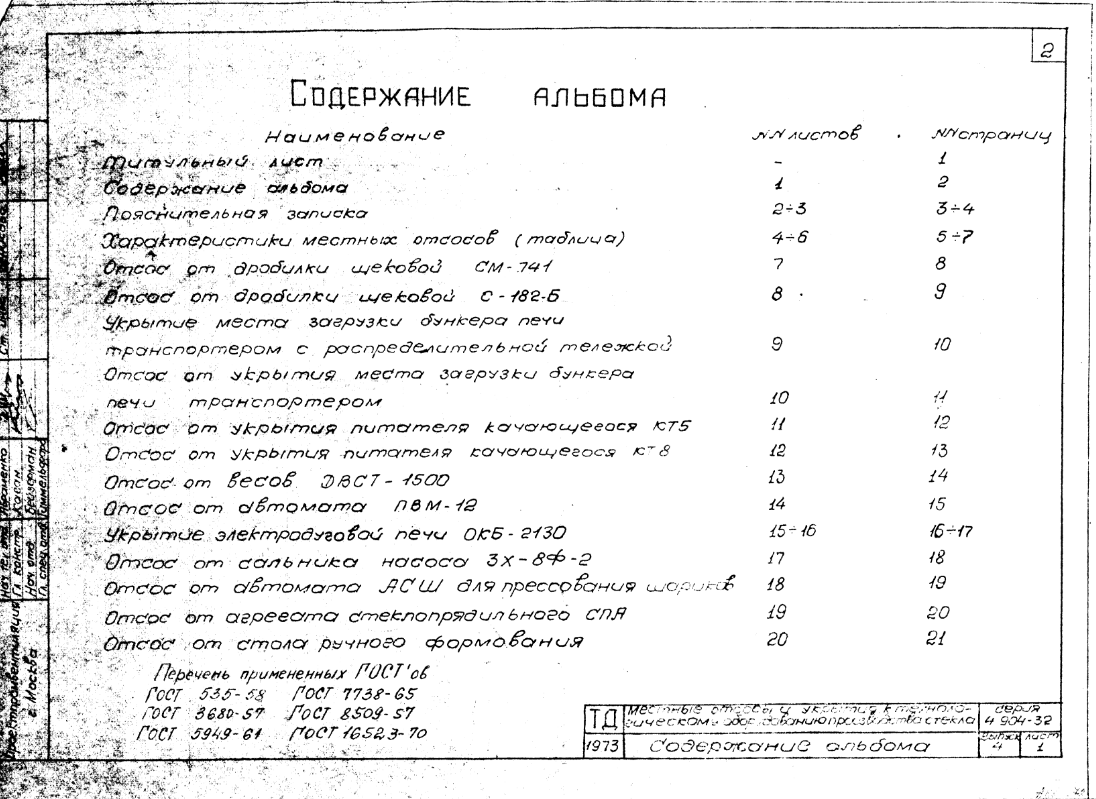 2
Содержание альбома
Наименование NN листов NN страниц
Титульный лист - 1
Содержание альбома 1 2
Пояснительная записка 2÷3 3÷4
Характеристики местных отсосов (таблица) 4÷6 5÷7
Отсос от дробилки щековой СМ-741 7 8
Отсос от дробилки щековой С-182-Б 8 9
Укрытие места загрузки бункера печи
транспортером с распределительной тележкой 9 10
Отсос от укрытия места загрузки бункера
печи транспортером 10 11
Отсос от укрытия питателя качающегося КТ5 11 12
Отсос от укрытия питателя качающегося КТ8 12 13
Отсос от весов ДВСТ-1500 13 14
Отсос от автомата ПВМ-12 14 15
Укрытие электродуговой печи ОКБ-2130 15÷16 16÷17
Отсос от сальника насоса 3Х-8Ф-2 17 18
Отсос от автомата АСШ для прессования шариков 18 19
Отсос от агрегата стеклопрядильного СПЯ 19 20
Отсос от стола ручного формования 20 21
Перечень примененных ГОСТ'ов
ГОСТ 535-58 ГОСТ 7738-65
ГОСТ 3680-57 ГОСТ 8509-57
ГОСТ 5949-61 ГОСТ 16523-70
ТД Местные отсосы и укрытия к технологическому оборудованию производства стекла серия 4 904-32
1973 Содержание альбома выпуск 4 лист 1
Проектпромвентиляция
г. Москва
Гл. констр. Коган
Нач. отд.